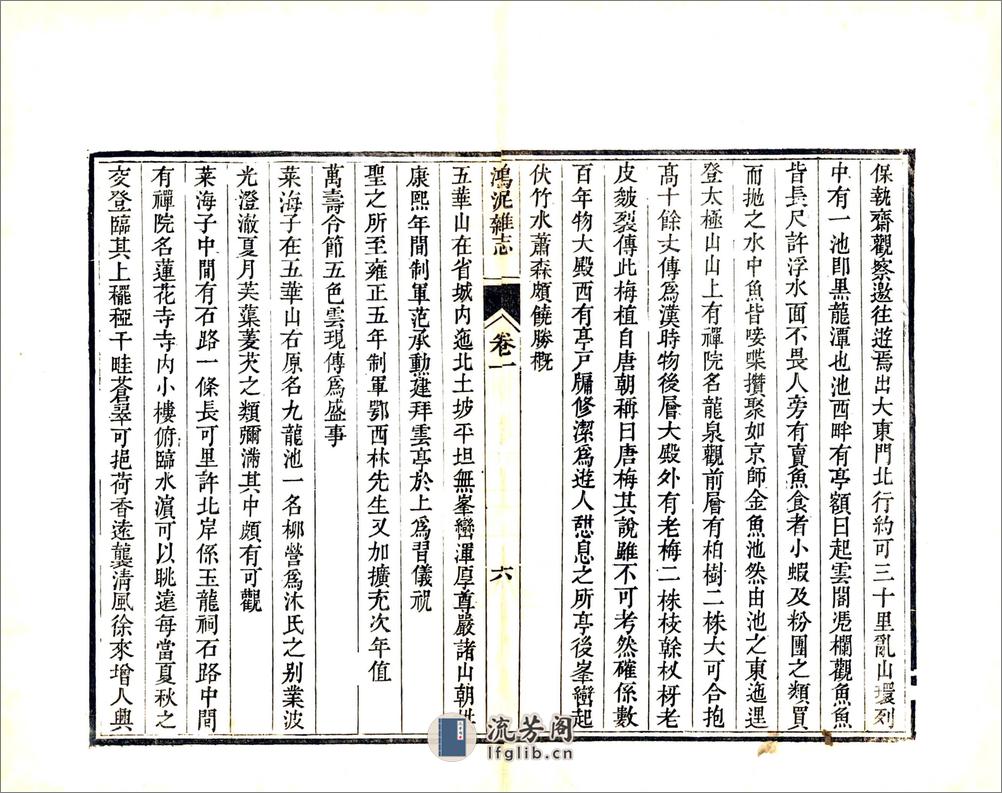 保執齋觀察邀往遊焉出大東門北行約可三十里亂山環列
中有一池卽黒龍潭也池西畔有亭額曰起雲閣凭欄觀魚魚
皆長尺許浮水面不畏人旁有賣魚食者小蝦及粉團之類買
而拋之水中魚皆唼喋攢聚如京師金魚池然由池之東迤逞
登太極山山上有禪院名龍泉觀前層有柏樹二株大可合抱
髙十餘丈傳爲漢時物後層大殿外有老梅二株枝榦杈枒老
皮皴裂傳此梅植自唐朝稱曰唐梅其說雖不可考然確係數
百年物大殿西有亭戸牖修潔爲遊人憇息之所亭後峯巒起
伏竹水蕭森頗饒勝槪
鴻泥雜志
卷一
六
五華山在省城内迤北土坡平坦無峯巒渾厚尊嚴諸山朝拱
康熙年間制軍范承勲建拜雲亭於上爲習儀祝
聖之所至雍正五年制軍鄂西林先生又加擴充次年值
萬壽令節五色雲現傳爲盛事
菜海子在五華山右原名九龍池一名柳營爲沐氏之别業波
光澄澈夏月芙蕖菱芡之類彌滿其中頗有可觀
菜海子中間有石路一條長可里許北岸係玉龍祠石路中間
有禪院名蓮花寺寺内小樓俯臨水濵可以眺遠每當夏秋之
交登臨其上穲稏千畦蒼翠可挹荷香遠襲清風徐來增人興
流芳阁
lfglib.cn